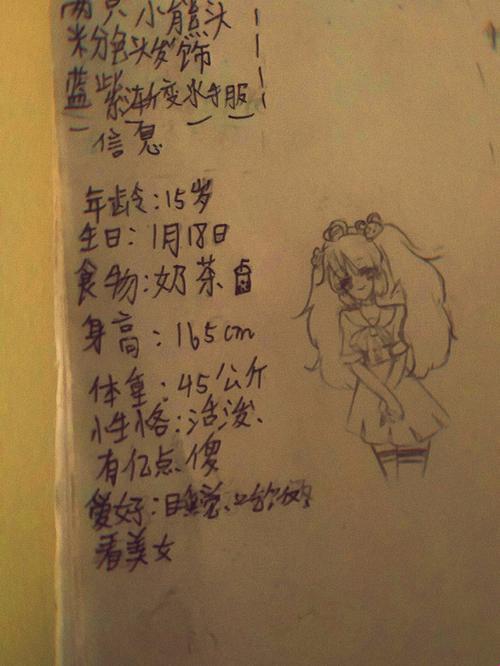 两只小熊头
粉色头发饰
蓝紫渐变水手服
信息
年龄:15岁
生日:1月18日
食物:奶茶
身高:165cm
体重:45公斤
性格:活泼、
有亿点傻
爱好:睡觉、
看美女